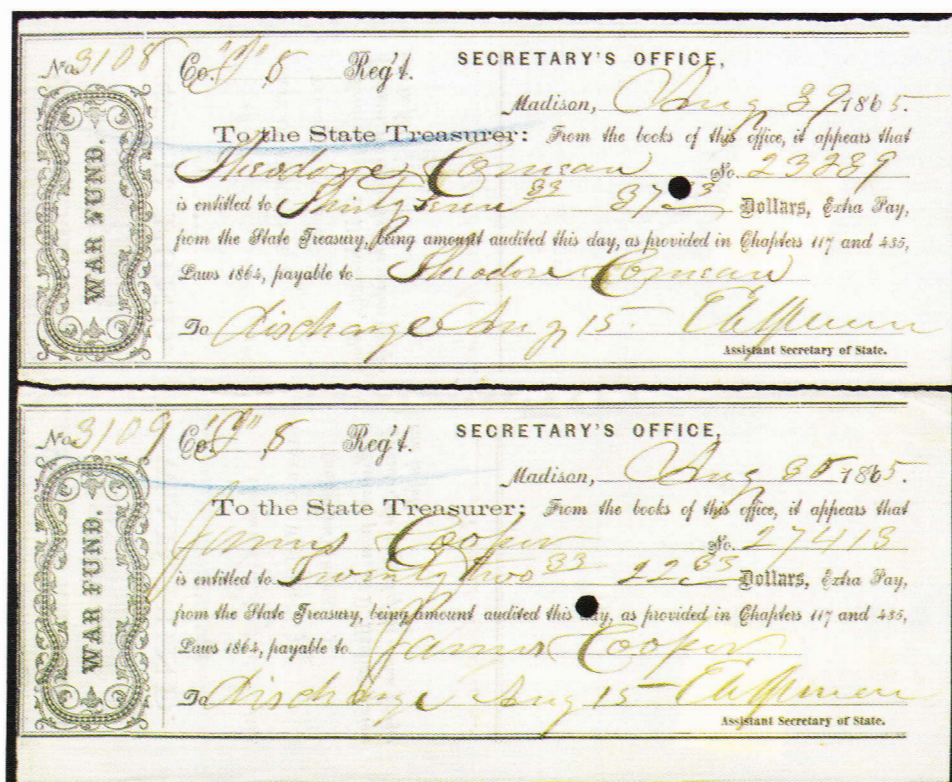 No. 3108 Co. "I" 8 Reg't. SECRETARY'S OFFICE,
Madison, Aug 1865.
WAR FUND.
To the State Treasurer: From the books of this office, it appears that
Theodore Comeau No. 23289
is entitled to Thirty Seven 33 37 33 Dollars, Extra Pay,
from the State Treasury, being amount audited this day, as provided in Chapters 117 and 435,
Laws 1864, payable to Theodore Comeau
To discharge Aug 15-
Assistant Secretary of State.
No. 3109 Co. 8 Reg't. SECRETARY'S OFFICE,
Madison, Aug 30 1865.
WAR FUND.
To the State Treasurer: From the books of this office, it appears that
James Cooper No. 27413
is entitled to Twenty two 33 22 33 Dollars, Extra Pay,
from the State Treasury, being amount audited this day, as provided in Chapters 117 and 435,
Laws 1864, payable to James Cooper
To discharge Aug 15-
Assistant Secretary of State.